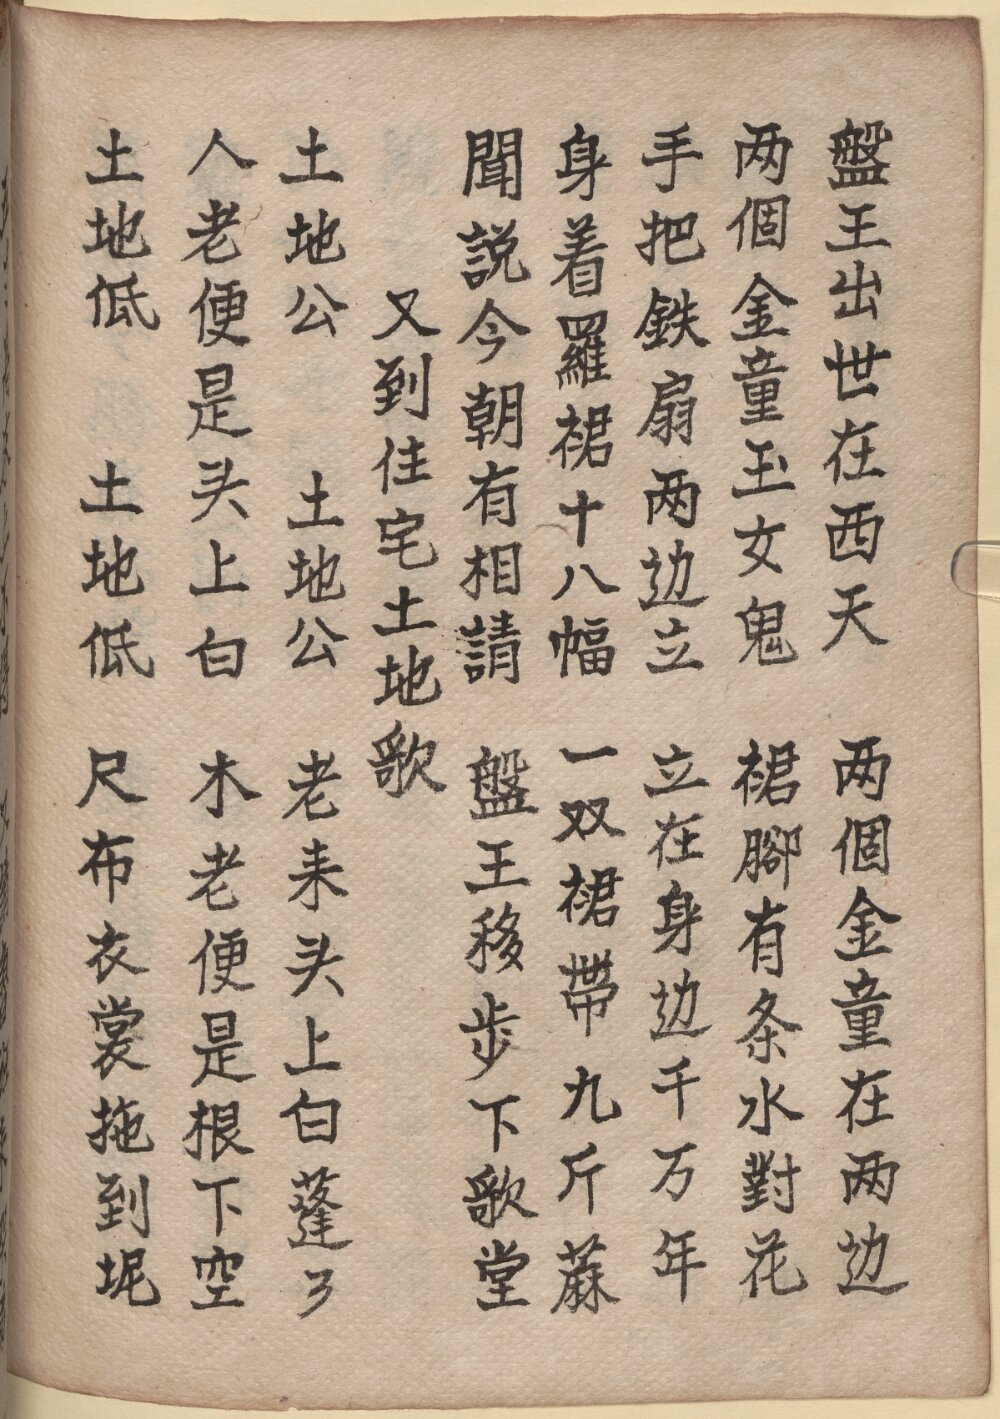 盤王出世在西天　两個金童在两边
两個金童玉女鬼　裙腳有条水對花
手把鉄扇两边立　立在身边千万年
身着羅裙十八幅　一双裙带九斤蔴
聞説今朝有相請　盤王移步下歌堂
又到住宅土地歌
土地公　土地公　老来头上白蓬了
人老便是头上白　木老便是根下空
土地低　土地低　尺布衣裳拖到坭